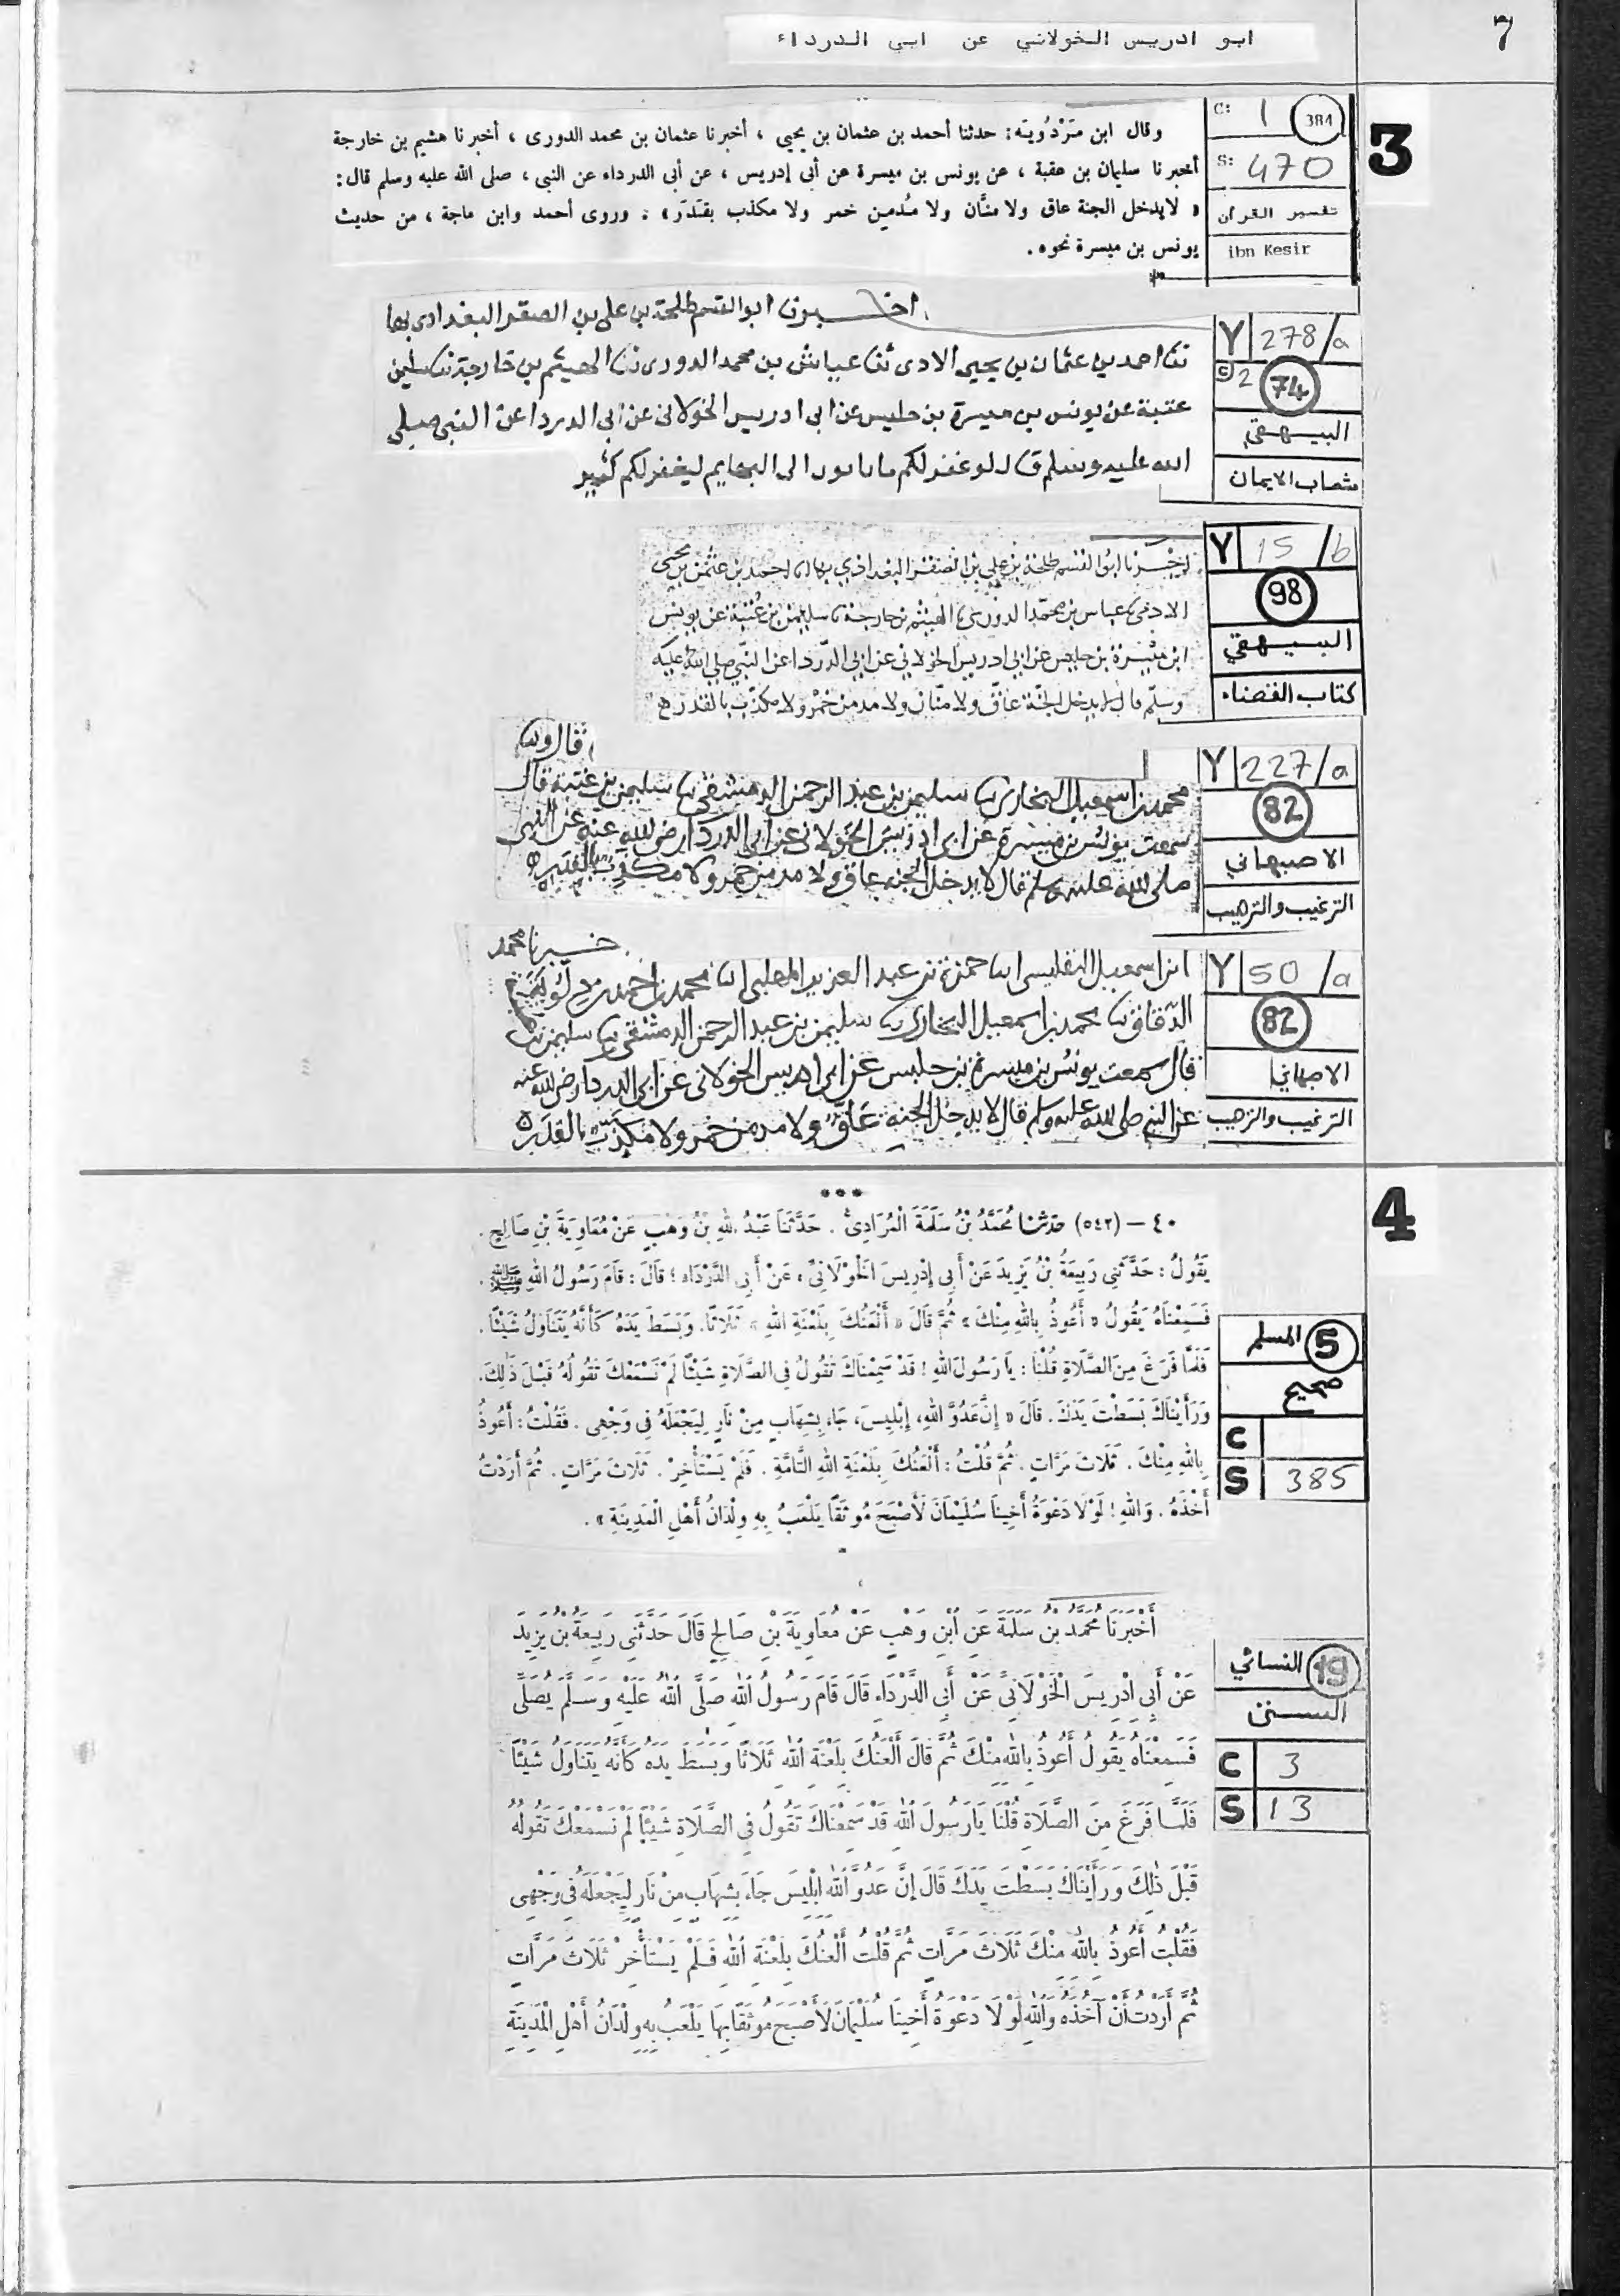 7
ابو ادريس الخولاني عن ابي الدرداء
3
C: 1 384
S: 470
تفسير القرآن
ibn Kesir
وقال ابن مَرْدُويَه: حدثنا أحمد بن عثمان بن يحيى ، أخبرنا عثمان بن محمد الدورى ، أخبرنا هشيم بن خارجة
أخبرنا سليمان بن عقبة ، عن يونس بن ميسرة عن أبى إدريس ، عن أبى الدرداء عن النبى ، صلى الله عليه وسلم قال :
« لا يدخل الجنة عاق ولا منَّان ولا مُدمين خمر ولا مكذب بقَدَر » . وروى أحمد وابن ماجة ، من حديث
يونس بن ميسرة نحوه .
Y 278/a
C 2 74
البيهقي
شعاب الايمان
اخبرنا ابو القسم طلحة بن علي بن الصقر البغدادي بها
ثنا احمد بن عثمان بن يحيى الادى ثنا عباش بن محمد الدورى ثنا الهيثم بن خارجة ثنا سليمن
عتبة عن يونس بن ميسرة بن حلبس عن ابى ادريس الخولانى عن ابى الدردا عن النبى صلى
الله عليه وسلم قال لو غفر لكم ما الى البهايم ليغفر لكم كثير
Y 15/b
98
البيهقي
كتاب القضاء
اخبرنا ابو القسم طلحة بن علي بن الصقر البغداذي احمد بن عثمن بن يحيى
الادمي عباس بن محمد الدوري الهيثم بن خارجة سليمن بن عتبة عن يونس
ابن ميسرة بن حلبس عن ابي ادريس الخولاني عن ابي الدردا عن النبي صلى الله عليه
وسلم قال لا يدخل الجنة عاق ولا منان ولا مدمن خمر ولا مكذب بالقدر
Y 227/a
82
الاصبهاني
الترغيب والترهيب
قال
محمد بن اسمعيل البخارى سليمن بن عبد الرحمن الدمشقى سليمن بن عتبة قال
سمعت يونس بن ميسرة عن ابى ادريس الخولانى عن ابى الدردا رضى الله عنه عن النبى
صلى الله عليه وسلم قال لا يدخل الجنه عاق ولا مدمن خمر ولا مكذب بالقدر
Y 50/a
82
الاصبهاني
الترغيب والترهيب
خبرنا محمد
ابن اسمعيل التفليسى حمزة بن عبد العزيز المهلبى محمد بن احمد بن
الدقاق محمد بن اسمعيل البخارى سليمن بن عبد الرحمن الدمشقى سليمن
قال سمعت يونس بن ميسرة بن حلبس عن ابى ادريس الخولانى عن ابى الدردا رضى الله عنه
عن النبى صلى الله عليه وسلم قال لا يدخل الجنه عاق ولا مدمن خمر ولا مكذب بالقدر
4
***
٤٠ – (٥٤٢) حدثنا مُحَمَّدُ بْنُ سَلَمَةَ الْمُرَادِىُّ . حَدَّثَنَا عَبْدُ اللهِ بْنُ وَهْبٍ عَنْ مُعَاوِيَةَ بْنِ صَالِحٍ .
يَقُولُ : حَدَّثَنِى رَبِيعَةُ بْنُ يَزِيدَ عَنْ أَبِى إِدْرِيسَ الْخَوْلَانِىِّ ، عَنْ أَبِى الدَّرْدَاءِ ؛ قَالَ : قَامَ رَسُولُ اللهِ ﷺ .
فَسَمِعْنَاهُ يَقُولُ « أَعُوذُ بِاللهِ مِنْكَ » ثُمَّ قَالَ « أَلْعَنُكَ بِلَعْنَةِ اللهِ » ثَلَاثًا. وَبَسَطَ يَدَهُ كَأَنَّهُ يَتَنَاوَلُ شَيْئًا.
فَلَمَّا فَرَغَ مِنَ الصَّلَاةِ قُلْنَا : يَا رَسُولَ اللهِ ! قَدْ سَمِعْنَاكَ تَقُولُ فِى الصَّلَاةِ شَيْئًا لَمْ نَسْمَعْكَ تَقُولُهُ قَبْلَ ذَلِكَ.
وَرَأَيْنَاكَ بَسَطْتَ يَدَكَ . قَالَ « إِنَّ عَدُوَّ اللهِ، إِبْلِيسَ، جَاءَ بِشِهَابٍ مِنْ نَارٍ لِيَجْعَلَهُ فِى وَجْهِى . فَقُلْتُ : أَعُوذُ
بِاللهِ مِنْكَ . ثَلَاثَ مَرَّاتٍ . ثُمَّ قُلْتُ : أَلْعَنُكَ بِلَعْنَةِ اللهِ التَّامَّةِ . فَلَمْ يَسْتَأْخِرْ . ثَلَاثَ مَرَّاتٍ . ثُمَّ أَرَدْتُ
أَخْذَهُ . وَاللهِ ! لَوْلَا دَعْوَةُ أَخِينَا سُلَيْمَانَ لَأَصْبَحَ مُوثَقًا يَلْعَبُ بِهِ وِلْدَانُ أَهْلِ الْمَدِينَةِ » .
5 المسلم
صحيح
C
S 385
أَخْبَرَنَا مُحَمَّدُ بْنُ سَلَمَةَ عَنِ ابْنِ وَهْبٍ عَنْ مُعَاوِيَةَ بْنِ صَالِحٍ قَالَ حَدَّثَنِى رَبِيعَةُ بْنُ يَزِيدَ
عَنْ أَبِى إِدْرِيسَ الْخَوْلَانِىِّ عَنْ أَبِى الدَّرْدَاءِ قَالَ قَامَ رَسُولُ اللهِ صَلَّى اللهُ عَلَيْهِ وَسَلَّمَ يُصَلِّى
فَسَمِعْنَاهُ يَقُولُ أَعُوذُ بِاللهِ مِنْكَ ثُمَّ قَالَ أَلْعَنُكَ بِلَعْنَةِ اللهِ ثَلَاثًا وَبَسَطَ يَدَهُ كَأَنَّهُ يَتَنَاوَلُ شَيْئًا
فَلَمَّا فَرَغَ مِنَ الصَّلَاةِ قُلْنَا يَا رَسُولَ اللهِ قَدْ سَمِعْنَاكَ تَقُولُ فِى الصَّلَاةِ شَيْئًا لَمْ نَسْمَعْكَ تَقُولُهُ
قَبْلَ ذٰلِكَ وَرَأَيْنَاكَ بَسَطْتَ يَدَكَ قَالَ إِنَّ عَدُوَّ اللهِ إِبْلِيسَ جَاءَ بِشِهَابٍ مِنْ نَارٍ لِيَجْعَلَهُ فِى وَجْهِى
فَقُلْتُ أَعُوذُ بِاللهِ مِنْكَ ثَلَاثَ مَرَّاتٍ ثُمَّ قُلْتُ أَلْعَنُكَ بِلَعْنَةِ اللهِ فَلَمْ يَسْتَأْخِرْ ثَلَاثَ مَرَّاتٍ
ثُمَّ أَرَدْتُ أَنْ آخُذَهُ وَاللهِ لَوْلَا دَعْوَةُ أَخِينَا سُلَيْمَانَ لَأَصْبَحَ مُوثَقًا بِهَا يَلْعَبُ بِهِ وِلْدَانُ أَهْلِ الْمَدِينَةِ
19 النسائي
السنن
C 3
S 13